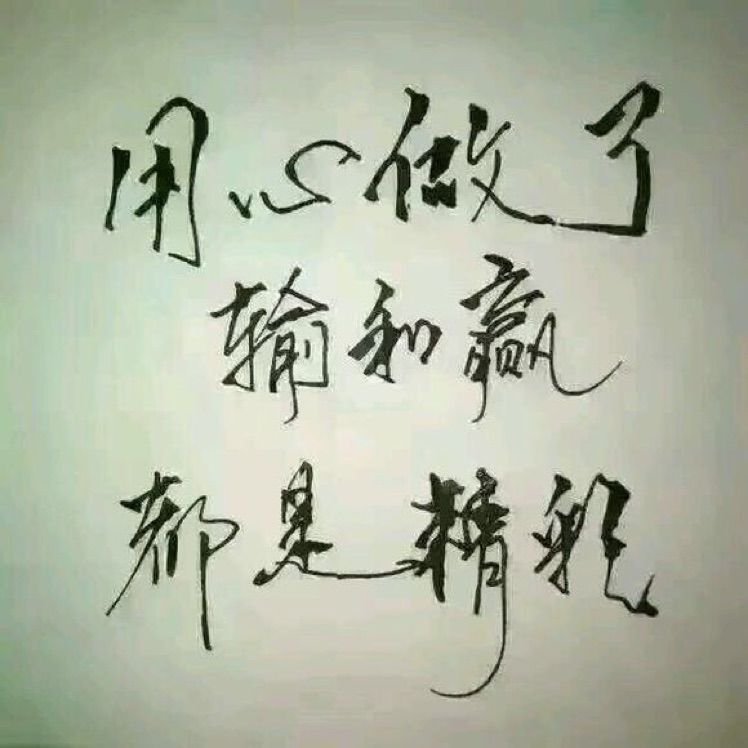 用心做了
输和赢
都是精彩